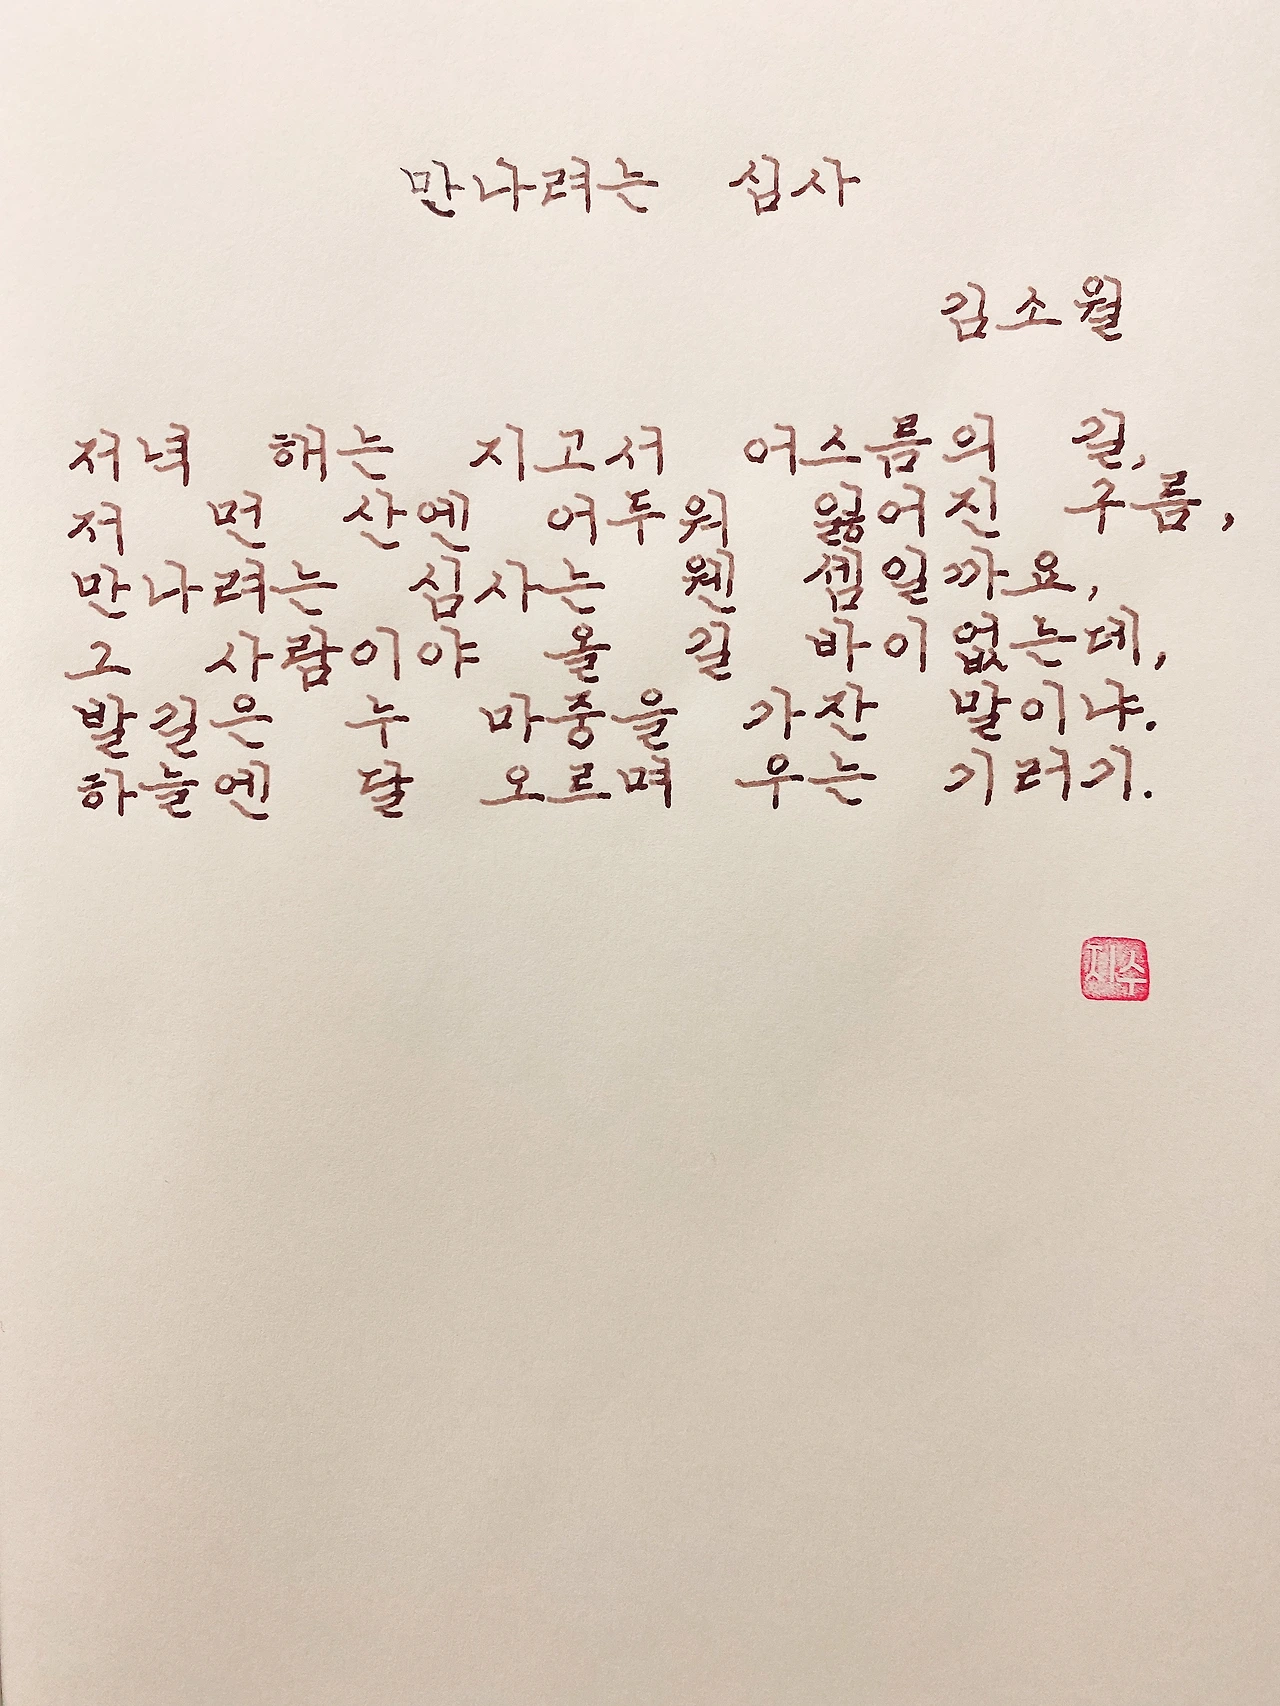 만나려는 심사
김소월
저녁 해는 지고서 어스름의 길,
저 먼 산엔 어두워 잃어진 구름,
만나려는 심사는 웬 셈일까요,
그 사람이야 올 길 바이없는데,
발길은 누 마중을 가잔 말이냐.
하늘엔 달 오르며 우는 기러기.
지수